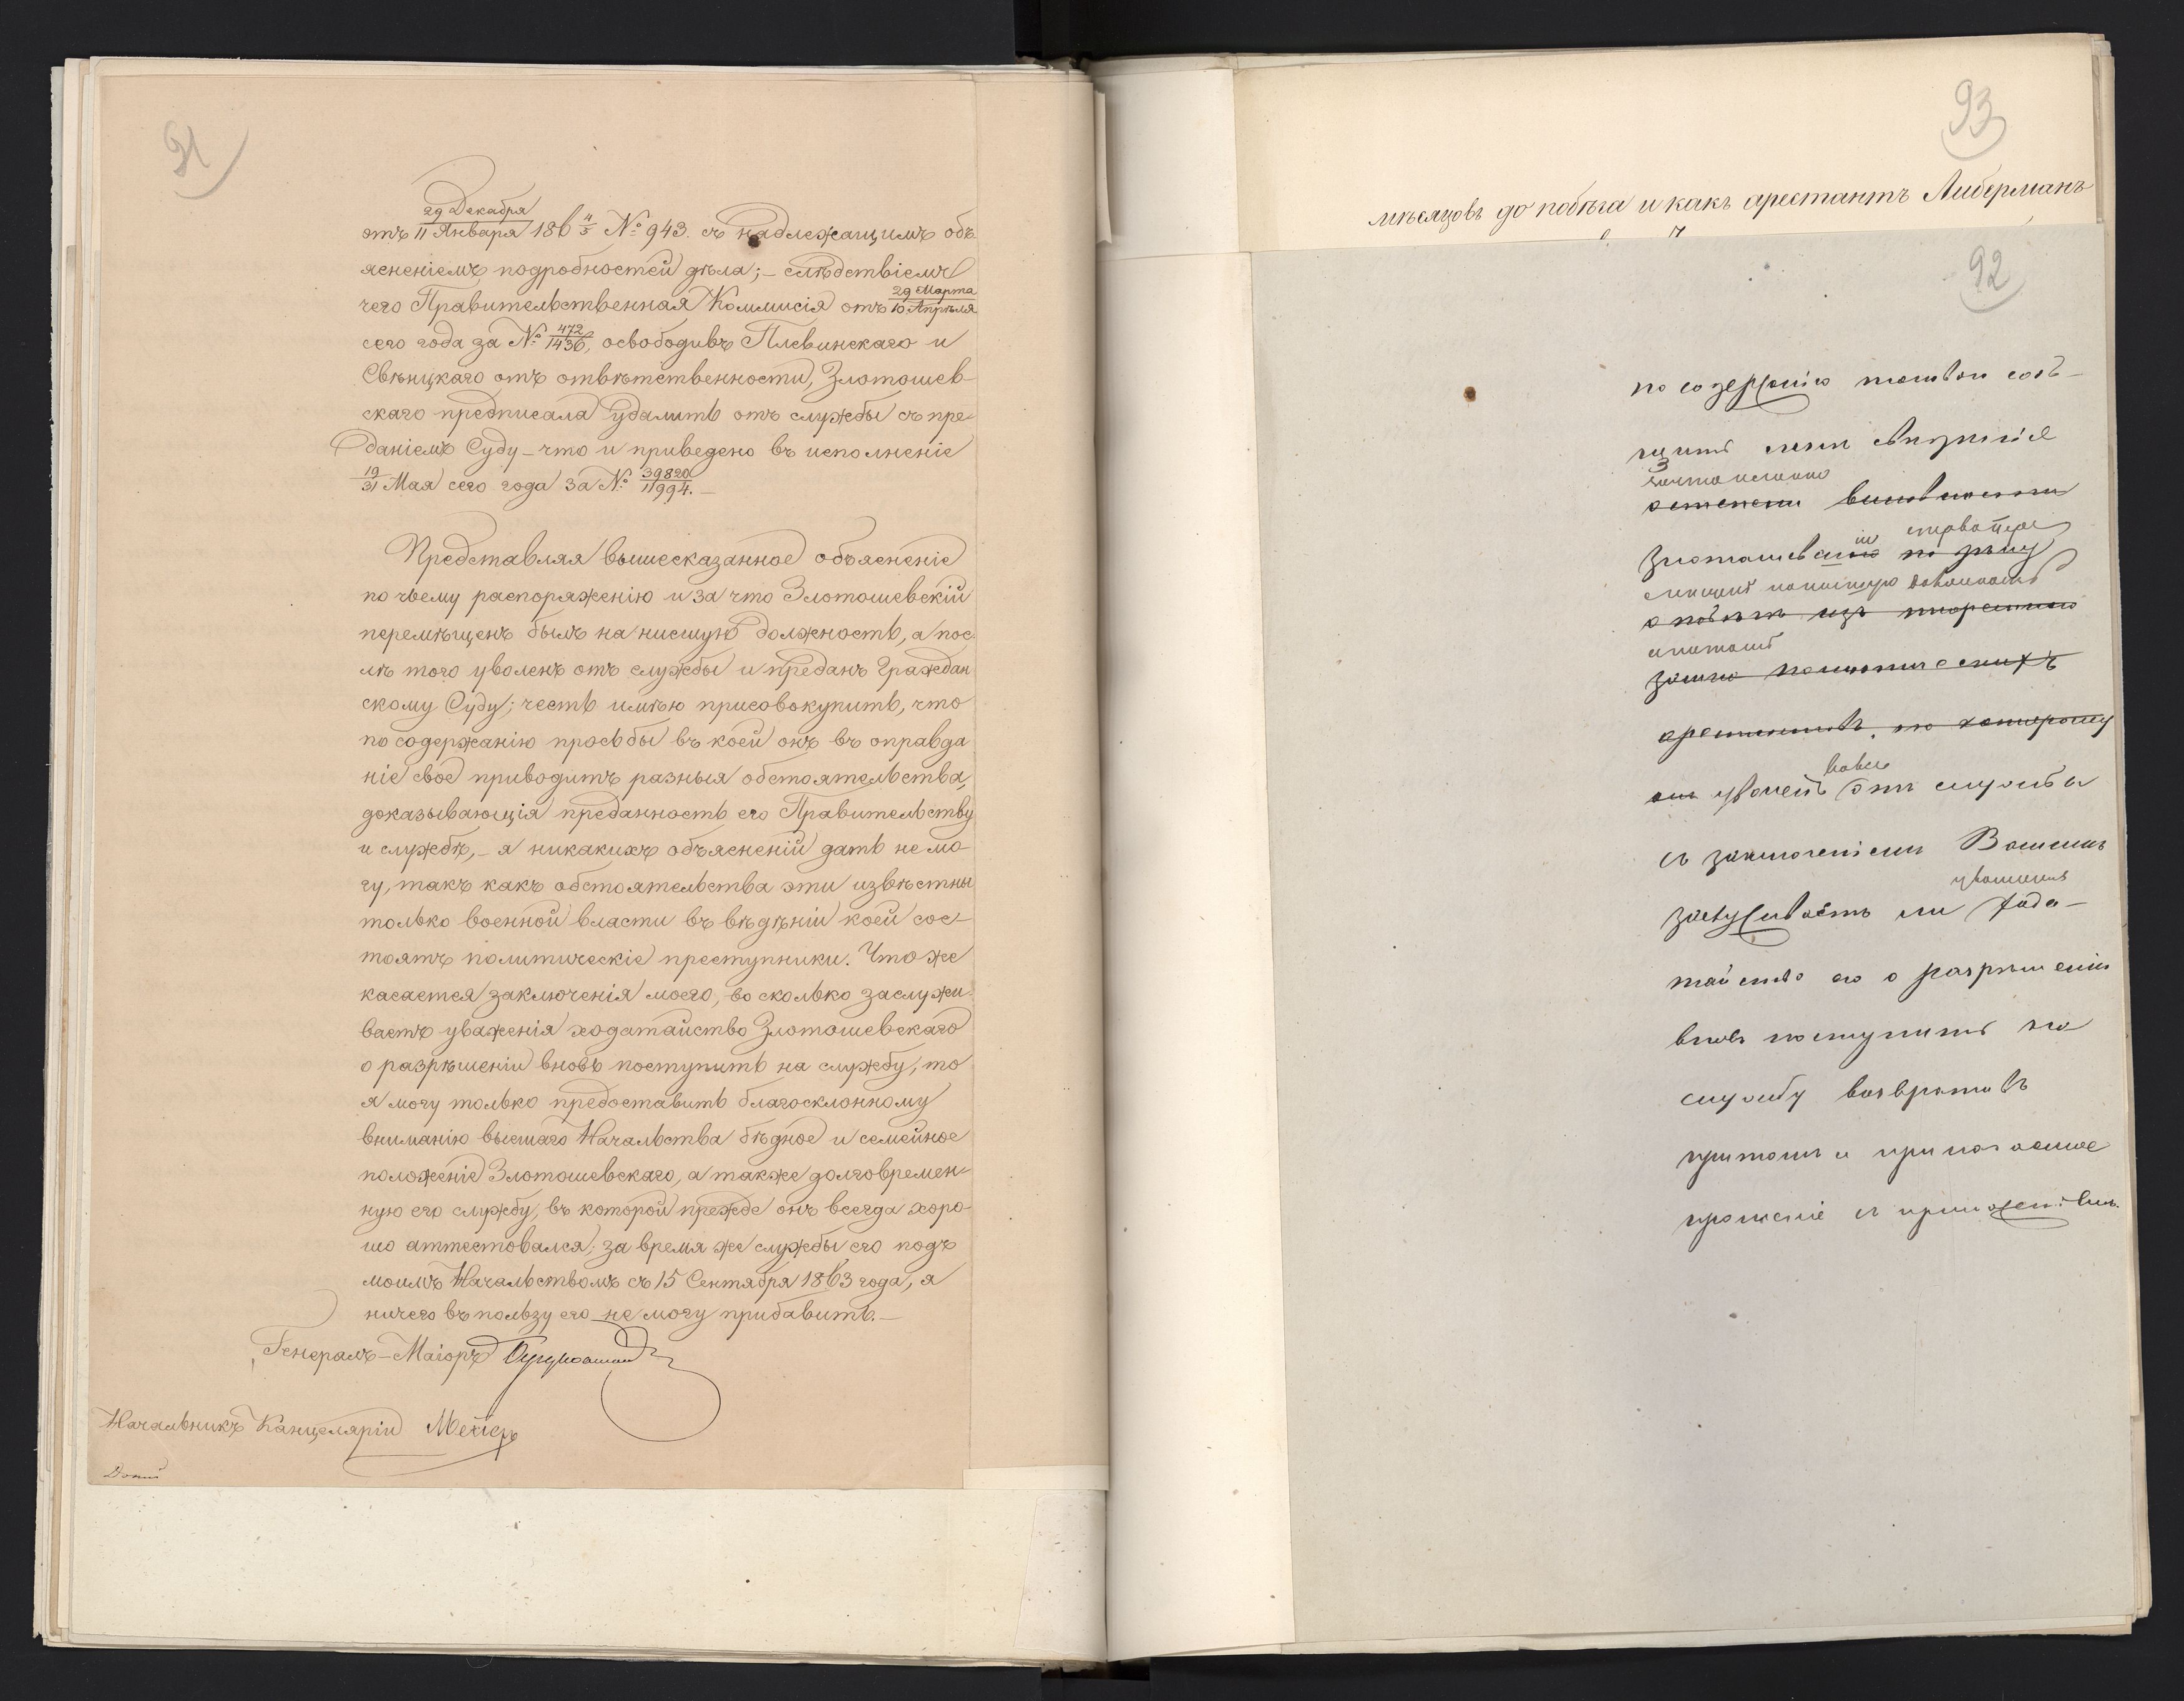 91
29 Декабря
отъ 11 Января 186 4/5 № 943. съ надлежащимъ объ-
ясненіемъ подробностей дѣла; – слѣдствіемъ
чего Правительственная Коммисія отъ 29 Марта / 10 Апрѣля
сего года за № 472/1436, освободивъ Плевинскаго и
Свѣницкаго отъ отвѣтственности, Злотошев-
скаго предписала удалить отъ службы съ пре-
даніемъ Суду – что и приведено въ исполненіе
19/31 Мая сего года за № 39820/11994. –
Представляя вышесказанное объясненіе
по чьему распоряженію и за что Злотошевскій
перемѣщенъ былъ на нисшую должность, а пос-
лѣ того уволенъ отъ службы и преданъ Граждан
скому Суду; честь имѣю присовокупить, что
по содержанію просьбы въ коей онъ въ оправда
ніе свое приводитъ разныя обстоятельства,
доказывающія преданность его Правительству
и службѣ, – я никакихъ объясненій дать не мо-
гу, такъ какъ обстоятельства эти извѣстны
только военной власти въ вѣдѣніи коей сос-
тоятъ политическіе преступники. Что же
касается заключенія моего, во сколько заслужи-
ваетъ уваженія ходатайство Злотошевскаго
о разрѣшеніи вновь поступить на службу, то
я могу только предоставить благосклонному
вниманію высшаго Начальства бѣдное и семейное
положеніе Злотошевскаго, а также долговремен-
ную его службу, въ которой прежде онъ всегда хоро-
шо аттестовался; за время же службы его подъ
моимъ Начальствомъ съ 15 Сентября 1863 года, я
ничего въ пользу его не могу прибавить. –
Генералъ-Маіоръ
Начальникъ Канцеляріи
93
мѣсяцовъ до побѣга и какъ арестантъ Либерманъ
92
по содержанію таковой сооб-
щить мнѣ свѣдѣнія
о степени виновности
Злотошевскій по дѣлу
низшую должность
о побѣгѣ изъ тюремнаго
замка политическихъ
арестантовъ, по которому
онъ уволенъ вовсе отъ службы
съ заключеніемъ Вашимъ
уваженія
заслуживаетъ ли хода-
тайство его о разрѣшеніи
вновь поступить на
службу возвративъ
при томъ и прилагаемое
прошеніе съ приложеніемъ.